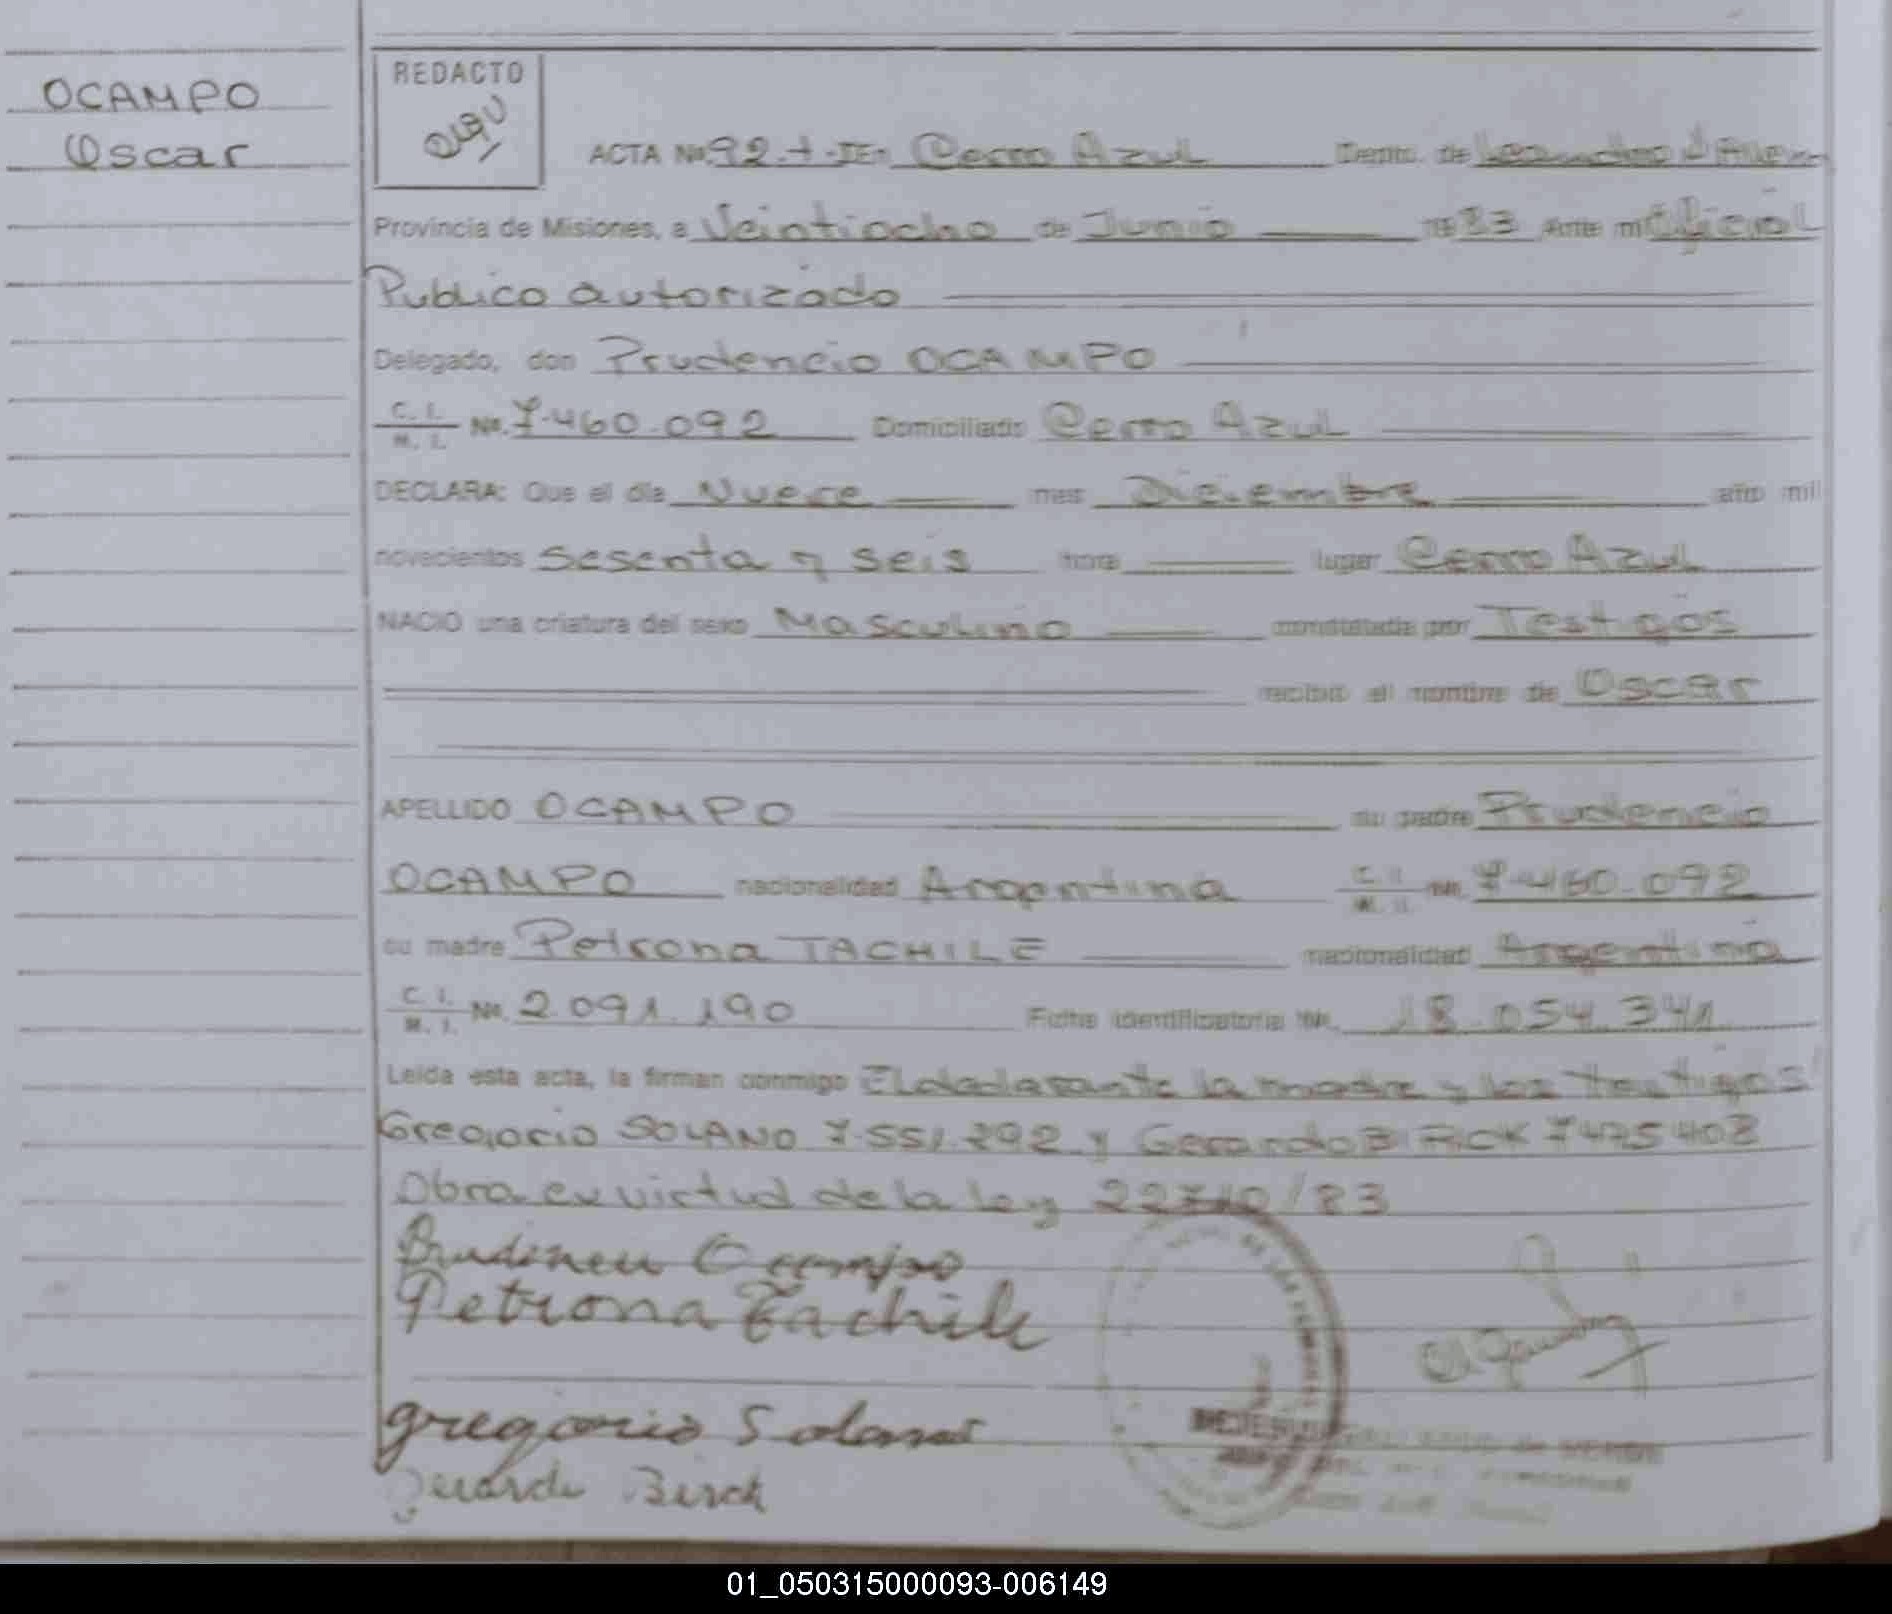 OCAMPO
Oscar
REDACTO
ACTA No. 92. T. IE En Cerro Azul Depto. de Leandro N Alem
Provincia de Misiones, a Veintiocho de Junio 19 83 Ante mi Oficial
Publico autorizado
Delegado, don Prudencio OCAMPO
C. I. M. I. No. 7.460.092 Domiciliado Cerro Azul
DECLARA: Que el día Nueve mes Diciembre año mil
novecientos sesenta y seis hora lugar Cerro Azul
NACIO una criatura del sexo Masculino constatada por Testigos
recibió el nombre de Oscar
APELLIDO OCAMPO su padre Prudencio
OCAMPO nacionalidad Argentina C. I. M. I. No. 7.460.092
su madre Petrona TACHILE nacionalidad Argentina
C. I. M. I. No. 2.091.190 Ficha identificatoria No. 18.054.341
Leída esta acta, la firman conmigo El declarante la madre y los testigos
Gregorio SOLANO 7.551.292 y Gerardo BIRCK 7475408
Obra en virtud de la Ley 22710/83
Prudencio Ocampo
Petrona Tachile
gregorio Solano
Gerardo Birck
01_050315000093-006149